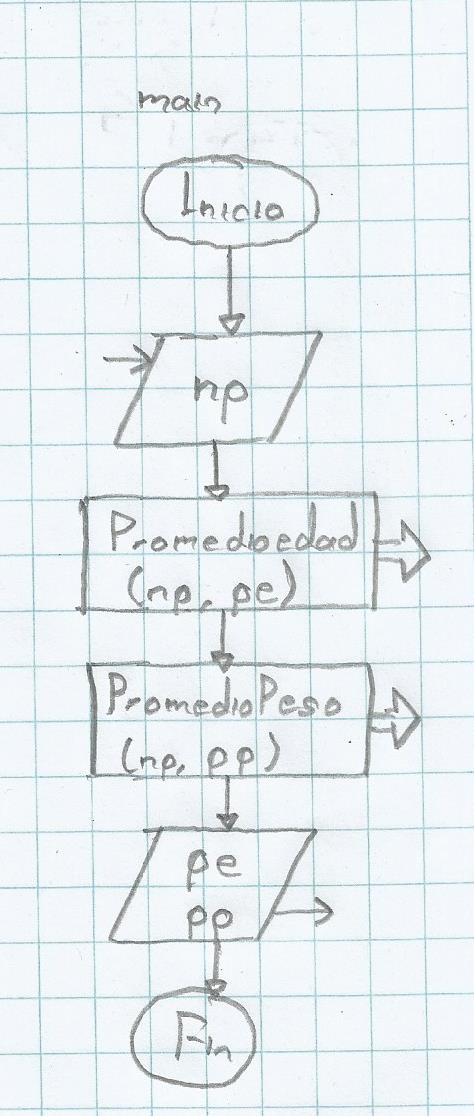 main
Inicio
np
Promedioedad
(np, pe)
PromedioPeso
(np, pp)
pe
pp
Fin